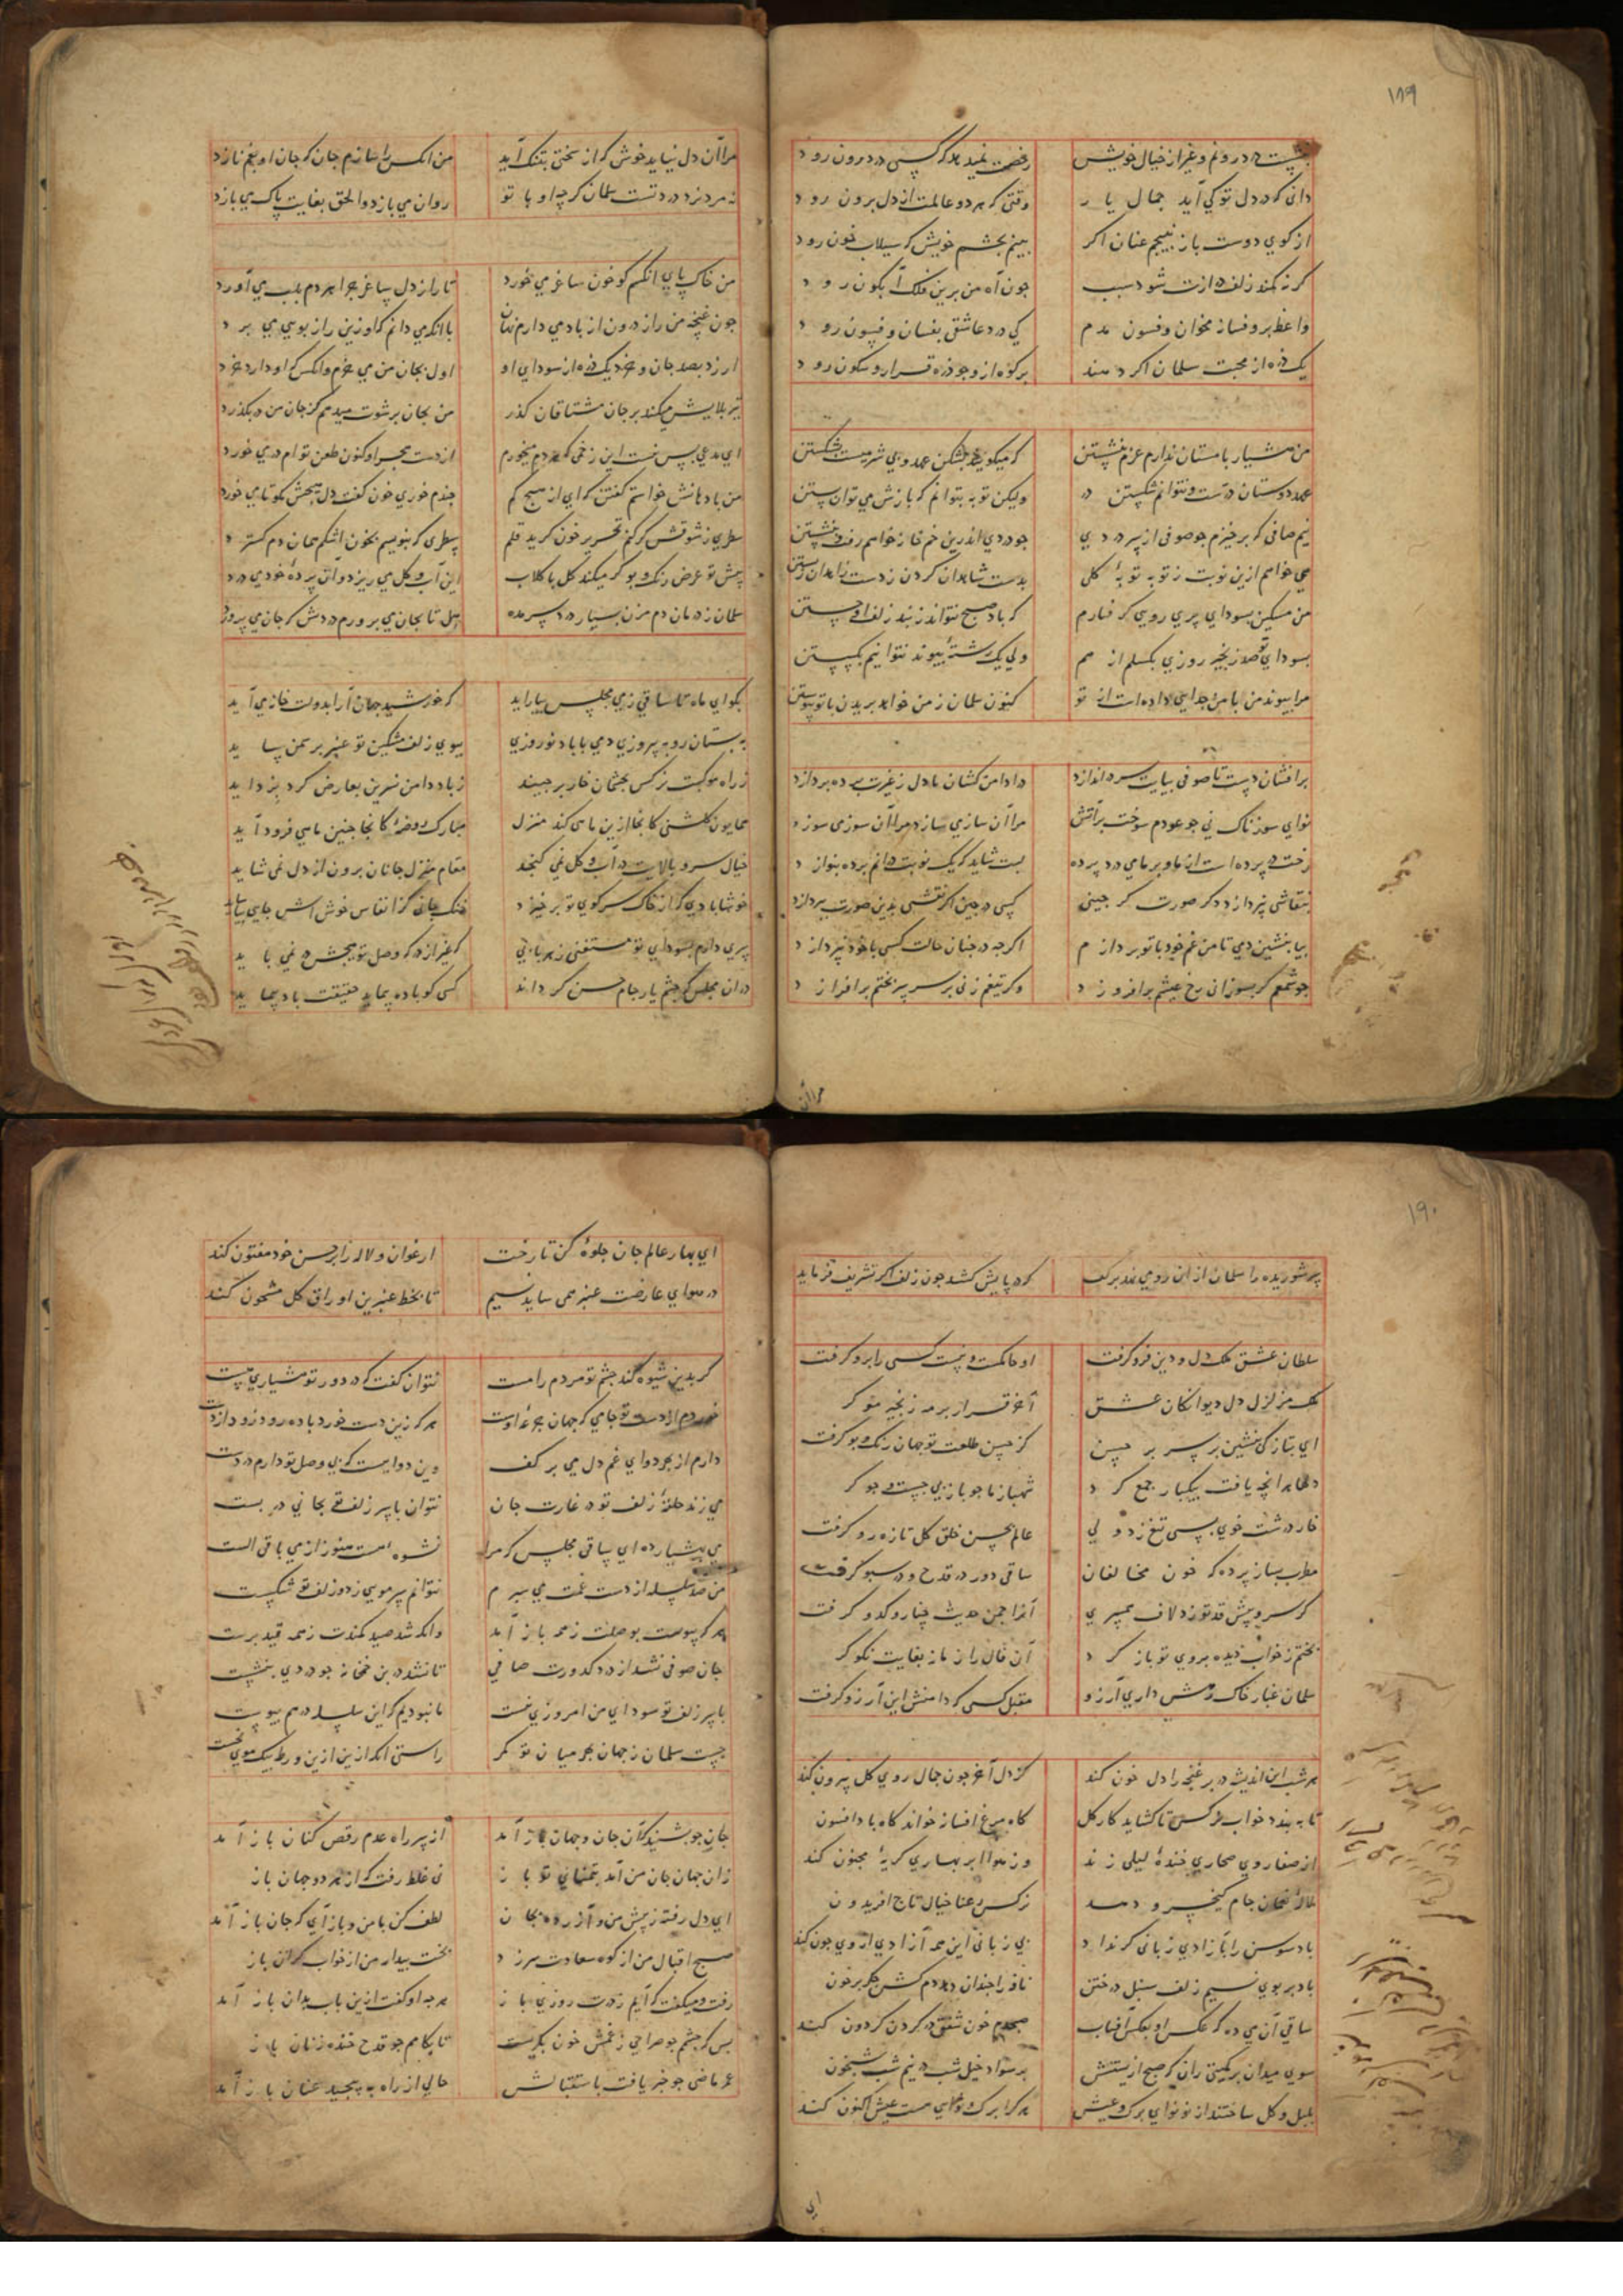 ۱۸۹
رخصت نمیدهد که کسی در درون رود
دانی که در دل تو کی آید جمال یار وقتی که هر دو عالمت از دل برون رود
از کوی دوست باز نپیچم عنان اکر بینم بچشم خویش که سیلاب خون رود
کر نه کمند زلف درازت شود سبب چون آه من برین فلک آبکون رود
واعظ برو فسانه مخوان و فسون مدم کی درد عاشقی بفسان و فسون رود
یک ذره از محبت سلمان اکر دهند بر کوه از وجود قرار و سکون رود
من هشیار با مستان ندارم عزم بنشستن که میکوید بشکن عهد و می شرمست بشکستن
عهد دوستان درست و نتوانم شکستن ولیکن توبه بتوانم که بازش می توان بستن
نیم صافی که برخیزم چو صوفی از سر دردی چو دردی اندرین خمخانه خواهم رفت و بنشستن
می خواهم ازین نوبت ز توبه توبه کلی بدست شاهدان کردن ز دست زاهدان رستن
من مسکین بسودای پری رویی کرفتارم که باد صبح نتواند ز بند زلف او جستن
بسودای تو صد زنجیر روزی بکسلم از هم ولی یک رشته پیوند نتوانیم بکسستن
مرا پیوند من با من جدایی داده است از تو کنون سلمان ز من خواهد بریدن با تو پیوستن
برافشان دست تا صوفی بپایت سر در اندازد ردا دامن کشان با دل ز غیرت پرده پردازد
نوای سوزناک نی چو عودم سوخت بر آتش مرا آن سازی سازد مرا آن سوزی سوزد
رخت در پرده است از ما و بر ما می درد پرده بست شاید که یک نوبت در آنم پرده بنوازد
بنقاشی نپردازد دکر صورت کر چینی کسی در چین اکر نقشی بدین صورت بپردازد
بیا بنشین دمی تا من غم خود با تو پردازم اکرچه در چنان حالت کسی با خود نپردازد
چو شمعم کر بسوزانی رخ عیشم برافروزد وکر تیغم زنی بر سر سر بختم برافرازد
مرا آن
مرا آن دل نیاید خوش که از سختی بتنک آید من آنکس را بنازم جان که جان او بغم نازد
نه مرد نرد دردتست سلمان کرچه او با تو روان می بازد و الحق بغایت پاک می بازد
من خاک پای آنکسم کو خون ساغر می خورد تا راز دل پیاغر چرا هر دم بلب می آورد
چون غنچه من راز درون از باد می دارم نهان با آنکه می دانم کو زین راز بویی می برد
ارزد بصد جان و خرد یک ذره از سودای او اول بجان من می خرم وانکس که او دارد خرد
تیر بلایش میکند بر جان مشتاقان کذر من بجان برشوت میدهم کز جان من در بکذرد
ای مدعی بس نیست این زخمی که هر دم میخورم از دست هجر او کنون طعن تو ام در می خورد
من با دهانش خواستم کفتن که ای از هیچ کم
سطری ز شوقش کر کنم تحریر خون کرید قلم سطری که بنویسم بخون اشکم همان دم کسترد
پیش تو عرض رنک و بو کر میکند کل با کلاب این آب و کل می ریزد و آن پرده خود می درد
سلمان ز درمان دم مزن بسپار در دو سر مده هل تا بجان می پرورم دردش که جان می پرورد
بکو ای ماه تا ساقی ز می مجلس بیاراید که خورشید جهان آرا بدولت خانه می آید
به بستان رو به پیروزی دمی با باد نوروزی ببوی زلف مشکین تو عنبر بر سمن ساید
ز راه موکبت نرکس بچشمان خار برچیند ز باد دامن نسرین بعارض کرد بزداید
همایون کلشنی کآنجا ازین ماهی کند منزل مبارک روضه کانجا چنین ماهی فرود آید
خیال سرو بالایت در آب و کل نمی کنجد مقام منزل جانان برون از دل نمی شاید
خوشا بادی که از خاک سر کوی تو برخیزد خنک جانی کز انفاس خوش آسایش بیاساید
سری دارم بسودای تو مستغنی ز هر بابی که غیر از درکه وصل تو هیچش در نمی باید
در آن مجلس که چشم یار جام حسن کرداند کسی کو باده پیماید حقیقت باد پیماید
۱۹۰
سر شوریده را سلمان از آن رو می نهد بر کف که در پایش کشد چون زلف اکر تشریف فرماید
سلطان عشق ملک دل و دین فرو کرفت او حاکمست و نیست کسی را برو کرفت
ملک متزلزل دل دیوانکان عشق آخر قرار بر مه زنجیر مو کرفت
ای بت بناز کی بنشین بر سریر حسن کز حسن طلعت تو جهان رنک و بو کرفت
دلها هر آنچه یافت بیکبار جمع کرد شهباز ما چو بازی جست و جو کر
خار درشت خوی بسی تیغ زد ولی عالم بحسن خلق کل تازه رو کرفت
مطرب بساز پرده که خون مخالفان ساقی دور در قدح و در سبو کرفت
کر سرو پیش قد تو زد لاف همسری آنرا چمن حدیث چنار و کدو کرفت
بختم ز خواب دیده بروی تو باز کرد آن فال را ز ما ز بغایت نکو کر
سلمان غبار خاک رهش داری آرزو مقبل کسی که دامنش این آرزو کرفت
هر شب این اندیشه در بر غنچه را دل خون کند کز دل آخر چون جمال روی کل بیرون کند
تا به بندد خواب نرکس تا کشاید کار کل کاه مرغ افسانه خواند کاه باد افسون
از صفا روی صحاری خنده لیلی زند وز هوا ابر بهاری کریه مجنون کند
لاله نعمان جام کیخسرو دهد نرکس رعنا خیال تاج افریدون
باد سوسن را بآزادی زبانی کر نداد بی زبانی این همه آزادی از وی چون کند
باد بر بوی نسیم زلف سنبل در ختن نافه را چندان دهد دم کش جکر بر خون
ساقی آن می ده که عکس او بعکس آفتاب صبحدم خون شفق در کردن کردون کند
سوی میدان بر کمیتی ران که صبح از پستش بر سواد خیل شب در نیم شب شبخون
بلبل و کل ساختند از نو نوای برک و عیش هر کرا برک و نوای هست عیش اکنون کند
ای
ای بهار عالم جان جلوه کن تا رخت ارغوان و لاله را بر حسن خود مفتون کند
در هوای عارضت عنبر همی ساید نسیم تا بخط عنبرین اوراق کل مشحون کند
کر بدین شیوه کند چشم تو مردم را مست نتوان کفت که در دور تو هشیاری هست
خوردم از دست تو جامی که جهان جرعه اوست هر که زین دست خورد باده رود زود از دست
دارم از بهر دوای غم دل می بر کف وین دواییست که بی وصل تو دارم در دست
می زند حلقه زلف تو در غارت جان نتوان با سر زلف تو بجانی در بست
می بهشیار ده ای ساقی مجلس که مرا نشوه هست هنوز از می باقی الست
من صد سلسله از دست غمت می ببرم نتوانم سر مویی ز دو زلف تو شکست
هر که پیوست بوصلت ز همه باز آمد وانکه شد صید کمندت ز همه قید برست
جان صوفی نشد از درد کدورت صافی تا نشد در بن خمخانه چو دردی بنشست
با سر زلف تو سودای من امروزی نیست ما نبودیم که این سلسله در هم پیوست
جست سلمان ز جهان بهر میان تو کمر راستی آنکه ازین از این ورطه بیک موی بجست
جان چو بشنید که آن جان و جهان باز آمد از سر راه عدم رقص کنان باز آمد
زان جهان جان من آمد بتمنای تو باز نی غلط رفت که از هر دو جهان باز
ای دل رفته ز پیش من و آزرده بجان لطف کن با من و باز آی که جان باز آمد
صبح اقبال من از کوه سعادت سر زد بخت بیدار من از خواب کران باز
رفت و میکفت که آیم ز درت روزی باز هر چه او کفت ازین باب بدان باز آمد
بس که چشمم چو صراحی ز غمش خون بکریست تا بکامم چو قدح خنده زنان باز
عمر ماضی چو خبر یافت باستقبالش حالی از راه به پیچید عنان باز آمد